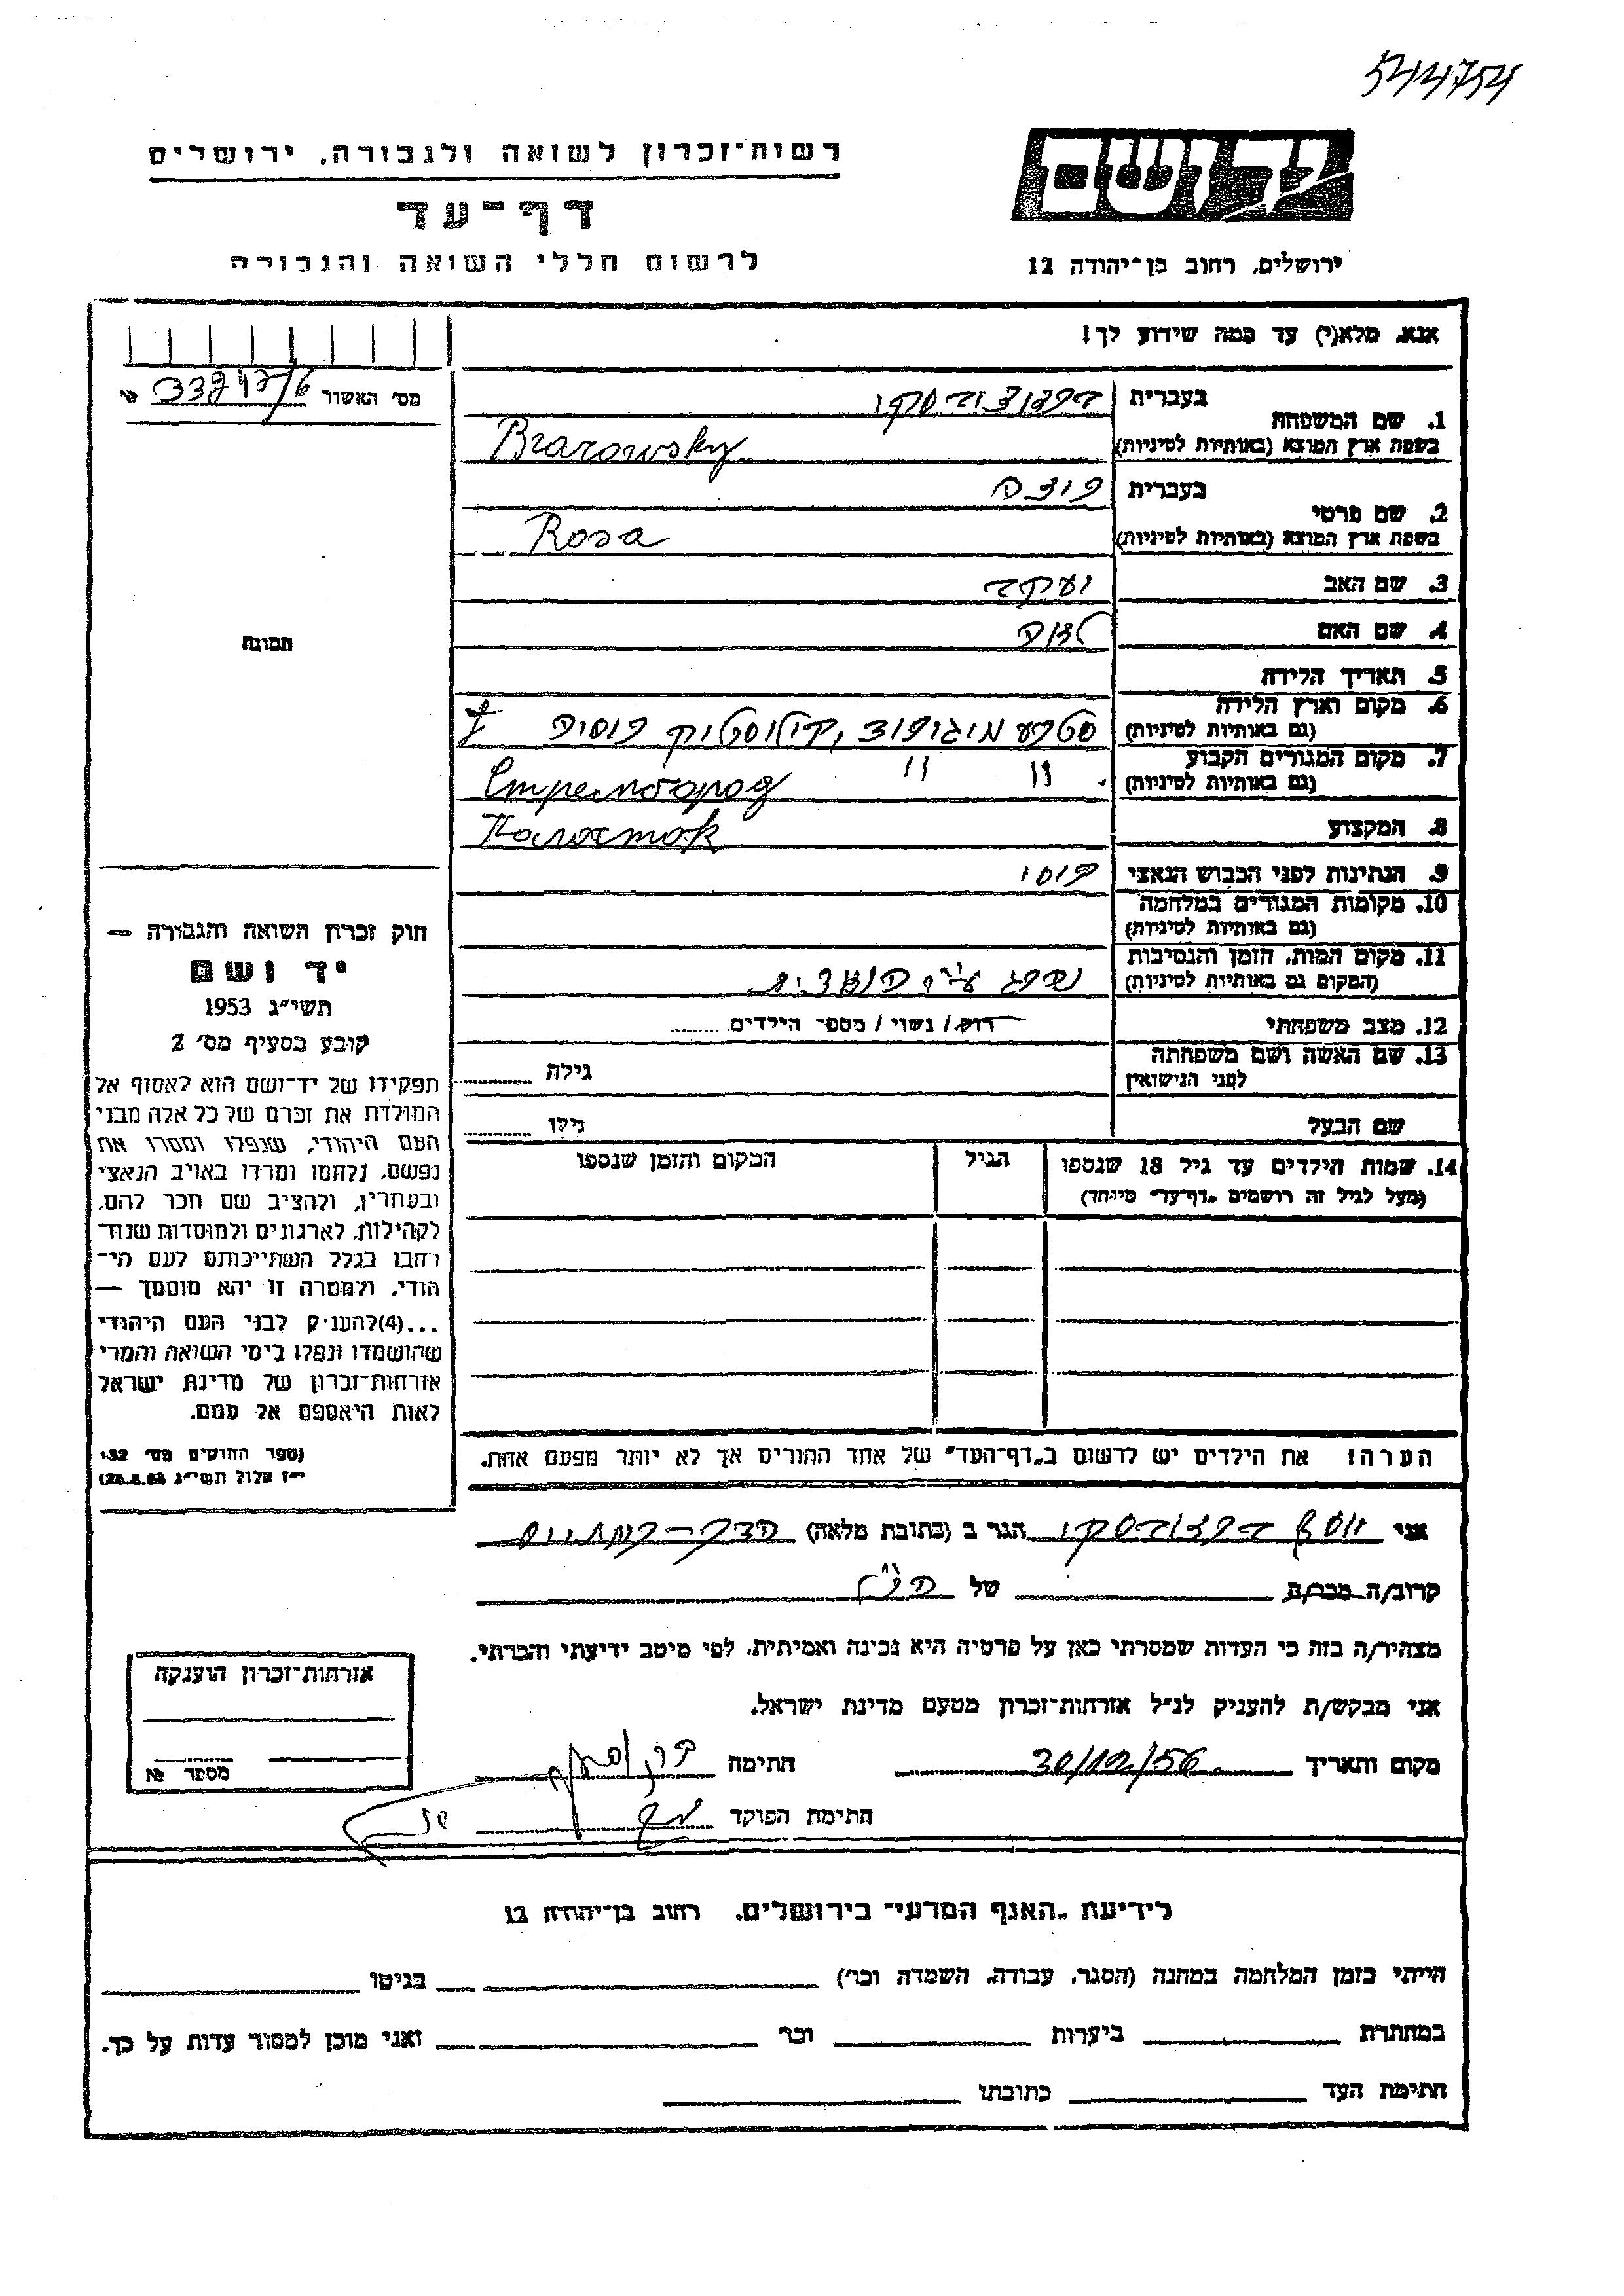 544754
רשות־זכרון לשואה ולגבורה, ירושלים
דף־עד
לרשום חללי השואה והגבורה
יד ושם
ירושלים, רחוב בן־יהודה 12
אנא, מלא(י) עד כמה שידוע לך!
מס׳ האשור
1. שם המשפחה
בעברית
בשפת ארץ המוצא (באותיות לטיניות)
Brarowsky
2. שם פרטי
בעברית רוזה
בשפת ארץ המוצא (באותיות לטיניות)
Rosa
3. שם האב יעקב
4. שם האם
5. תאריך הלידה
6. מקום וארץ הלידה
(גם באותיות לטיניות)
רוסיה
7. מקום המגורים הקבוע
(גם באותיות לטיניות)
8. המקצוע
9. הנתינות לפני הכבוש הנאצי רוסי
10. מקומות המגורים במלחמה
(גם באותיות לטיניות)
11. מקום המות, הזמן והנסיבות
(המקום גם באותיות לטיניות)
12. מצב משפחתי רווק/ נשוי/ מספר הילדים
13. שם האשה ושם משפחתה
לפני הנישואין
גילה
שם הבעל
גילו
14. שמות הילדים עד גיל 18 שנספו
(מעל לגיל זה רושמים „דף־עד״ מיוחד)
הגיל
המקום והזמן שנספו
הערה: את הילדים יש לרשום ב„דף־העד״ של אחד ההורים אך לא יותר מפעם אחת.
תמונה
חוק זכרון השואה והגבורה —
יד ושם
תשי״ג 1953
קובע בסעיף מס׳ 2
תפקידו של יד־ושם הוא לאסוף אל
המולדת את זכרם של כל אלה מבני
העם היהודי, שנפלו ומסרו את
נפשם, נלחמו ומרדו באויב הנאצי
ובעוזריו, ולהציב שם וזכר להם,
לקהילות, לארגונים ולמוסדות שנח־
רבו בגלל השתייכותם לעם הי־
הודי, ולמטרה זו יהא מוסמך —
...(4)להעניק לבני העם היהודי
שהושמדו ונפלו בימי השואה והמרי
אזרחות־זכרון של מדינת ישראל
לאות היאספם אל עמם.
(ספר החוקים מס׳ 132
י״ז אלול תשי״ג 28.8.53)
אני יוסף הגר ב (כתובת מלאה)
קרוב/ה מכר/ה של
מצהיר/ה בזה כי העדות שמסרתי כאן על פרטיה היא נכונה ואמיתית, לפי מיטב ידיעתי והכרתי.
אני מבקש/ת להעניק לנ״ל אזרחות־זכרון מטעם מדינת ישראל.
מקום ותאריך 30/12/56 חתימה
חתימת הפוקד
אזרחות־זכרון הוענקה
מספר №
לידיעת „האגף המדעי״ בירושלים, רחוב בן־יהודה 12
הייתי בזמן המלחמה במחנה (הסגר, עבודה, השמדה וכו׳) בגיטו
במחתרת ביערות וכו׳ ואני מוכן למסור עדות על כך.
חתימת העד כתובתו